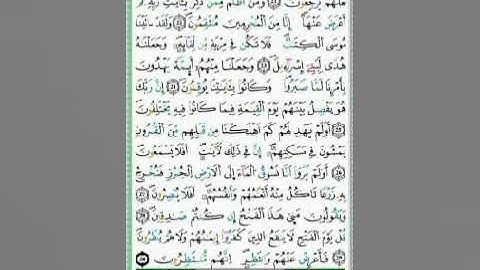 لَعَلَّهُمْ يَرْجِعُونَ ۝ وَمَنْ أَظْلَمُ مِمَّن ذُكِّرَ بِـَٔايَـٰتِ رَبِّهِۦ ثُمَّ
أَعْرَضَ عَنْهَآ إِنَّا مِنَ ٱلْمُجْرِمِينَ مُنتَقِمُونَ ۝ وَلَقَدْ ءَاتَيْنَا
مُوسَى ٱلْكِتَـٰبَ فَلَا تَكُن فِى مِرْيَةٍ مِّن لِّقَآئِهِۦ وَجَعَلْنَـٰهُ
هُدًى لِّبَنِىٓ إِسْرَٰٓءِيلَ ۝ وَجَعَلْنَا مِنْهُمْ أَئِمَّةً يَهْدُونَ
بِأَمْرِنَا لَمَّا صَبَرُوا۟ وَكَانُوا۟ بِـَٔايَـٰتِنَا يُوقِنُونَ ۝ إِنَّ رَبَّكَ
هُوَ يَفْصِلُ بَيْنَهُمْ يَوْمَ ٱلْقِيَـٰمَةِ فِيمَا كَانُوا۟ فِيهِ يَخْتَلِفُونَ
۝ أَوَلَمْ يَهْدِ لَهُمْ كَمْ أَهْلَكْنَا مِن قَبْلِهِم مِّنَ ٱلْقُرُونِ
يَمْشُونَ فِى مَسَـٰكِنِهِمْ إِنَّ فِى ذَٰلِكَ لَـَٔايَـٰتٍ أَفَلَا يَسْمَعُونَ
۝ أَوَلَمْ يَرَوْا۟ أَنَّا نَسُوقُ ٱلْمَآءَ إِلَى ٱلْأَرْضِ ٱلْجُرُزِ فَنُخْرِجُ
بِهِۦ زَرْعًا تَأْكُلُ مِنْهُ أَنْعَـٰمُهُمْ وَأَنفُسُهُمْ أَفَلَا يُبْصِرُونَ ۝
وَيَقُولُونَ مَتَىٰ هَـٰذَا ٱلْفَتْحُ إِن كُنتُمْ صَـٰدِقِينَ ۝
قُلْ يَوْمَ ٱلْفَتْحِ لَا يَنفَعُ ٱلَّذِينَ كَفَرُوٓا۟ إِيمَـٰنُهُمْ وَلَا هُمْ يُنظَرُونَ
۝ فَأَعْرِضْ عَنْهُمْ وَٱنتَظِرْ إِنَّهُم مُّنتَظِرُونَ ۝